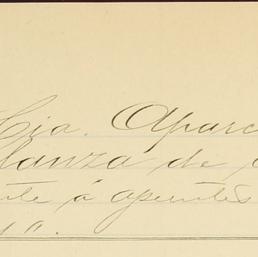 Cia. Aparc
lanza de
te á apuntes